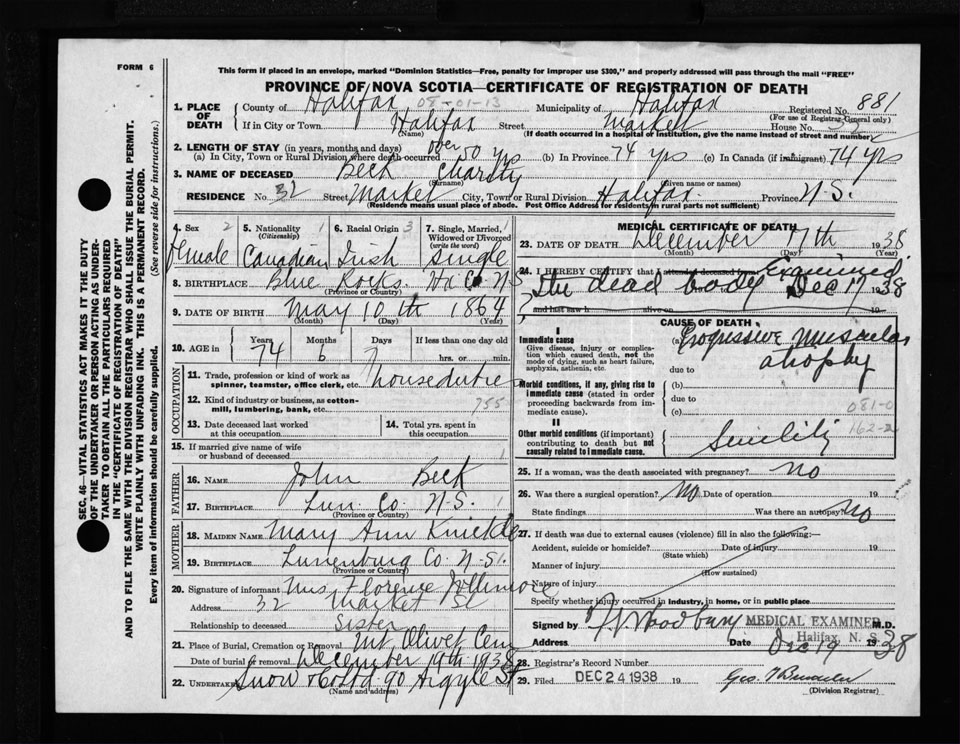 FORM 6
This form if placed in an envelope, marked "Dominion Statistics—Free, penalty for improper use $300," and properly addressed will pass through the mail "FREE"
PROVINCE OF NOVA SCOTIA—CERTIFICATE OF REGISTRATION OF DEATH
SEC. 46—VITAL STATISTICS ACT MAKES IT THE DUTY
OF THE UNDERTAKER OR PERSON ACTING AS UNDER-
TAKER TO OBTAIN ALL THE PARTICULARS REQUIRED
IN THE "CERTIFICATE OF REGISTRATION OF DEATH"
AND TO FILE THE SAME WITH THE DIVISION REGISTRAR WHO SHALL ISSUE THE BURIAL PERMIT.
WRITE PLAINLY WITH UNFADING INK. THIS IS A PERMANENT RECORD.
Every item of information should be carefully supplied. (See reverse side for instructions.)
1. PLACE OF DEATH County of Halifax 08-01-13 Municipality of Halifax Registered No. 881
(For use of Registrar-General only)
If in City or Town Halifax Street Market House No. 32
(Name) (If death occurred in a hospital or institution, give the name instead of street and number)
2. LENGTH OF STAY (in years, months and days)
(a) In City, Town or Rural Division where death occurred over 50 yrs (b) In Province 74 yrs (c) In Canada (if immigrant) 74 yrs
3. NAME OF DECEASED Beck Charity
(Surname) (Given name or names)
RESIDENCE No. 32 Street Market City, Town or Rural Division Halifax Province N.S.
(Residence means usual place of abode. Post Office Address for residents in rural parts not sufficient)
4. Sex 2 5. Nationality 1 6. Racial Origin 3 7. Single, Married, 1
(Citizenship) Widowed or Divorced
(write the word)
Female Canadian Irish Single
8. BIRTHPLACE Blue Rocks Co N.S
(Province or Country)
9. DATE OF BIRTH May 10th 1864
(Month) (Day) (Year)
10. AGE in Years Months Days If less than one day old
74 6 7 hrs. or min.
OCCUPATION
11. Trade, profession or kind of work as
spinner, teamster, office clerk, etc. houseduties
12. Kind of industry or business, as cotton-
mill, lumbering, bank, etc. 755
13. Date deceased last worked
at this occupation
14. Total yrs. spent in
this occupation
15. If married give name of wife
or husband of deceased 1
FATHER
16. NAME John Beck
17. BIRTHPLACE Lun Co. N.S. 1
(Province or Country)
MOTHER
18. MAIDEN NAME Mary Ann Knickle
19. BIRTHPLACE Lunenburg Co N.S. 1
(Province or Country)
20. Signature of informant Mrs Florence Jollimore
Address 32 Market St
Relationship to deceased Sister
21. Place of Burial, Cremation or Removal Mt Olivet Cem
Date of burial or removal December 19th 1938
22. UNDERTAKER Snow & Co Ltd 90 Argyle St
(Name and address)
MEDICAL CERTIFICATE OF DEATH
23. DATE OF DEATH December 17th 1938
(Month) (Day) (Year)
24. I HEREBY CERTIFY that I attended deceased from Examined
the dead body Dec 17 1938
and last saw h alive on 19
CAUSE OF DEATH
I
Immediate cause
Give disease, injury or complica-
tion which caused death, not the
mode of dying, such as heart failure,
asphyxia, asthenia, etc.
(a) Progressive muscular
atrophy
due to
Morbid conditions, if any, giving rise to
immediate cause (stated in order
proceeding backwards from im-
mediate cause).
(b)
due to
(c) 081-0
II 162-2
Other morbid conditions (if important)
contributing to death but not
causally related to immediate cause.
Senility
25. If a woman, was the death associated with pregnancy? no
26. Was there a surgical operation? No Date of operation 19
State findings Was there an autopsy? No
27. If death was due to external causes (violence) fill in also the following:—
Accident, suicide or homicide? Date of injury 19
(State which)
Manner of injury
(How sustained)
Nature of injury
Specify whether injury occurred in industry, in home, or in public place
Signed by Woodbury MEDICAL EXAMINER M.D.
Halifax, N. S.
Address Date Dec 19 1938
28. Registrar's Record Number
29. Filed DEC 24 1938 19 Geo.
(Division Registrar)